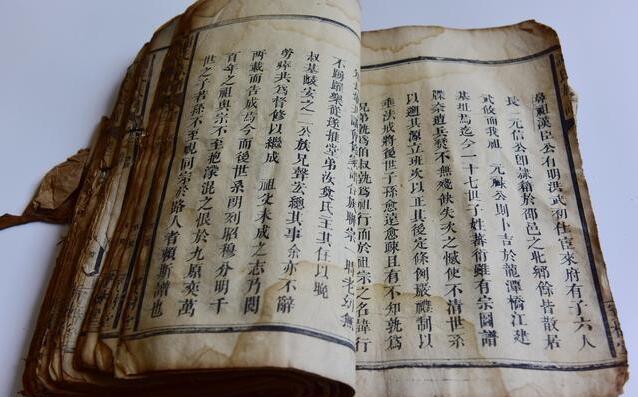 鼻祖漢臣公有明洪武初仕宦來府有子六人
長 元信公卽隸籍於邵邑之北鄉餘皆散居
武攸而我祖 元祿公則卜吉於龍潭橋江建
基祖焉迄今一十七世子姓蕃衍雖有宗圖譜
牒奈遭兵燹不無殘缺失次之憾使不清世系
以遡其源立班次以正其後定條例嚴禮制以
垂法戒將後世子孫愈遠愈疎且有不知孰爲
兄弟孰爲伯叔孰爲祖行而於祖宗之名諱行
不踴躍樂從遂推堂弟汝氏主其任以晚
叔基峻安之二公族兄聲安總其事余亦不辭
勞瘁共爲督修以繼成 祖父未成之志乃閱
兩載而告成焉今而後世系明列昭穆分明千
百年之祖與宗不至抱濛混之恨於九原奕萬
世之子與孫不至視同宗於路人者賴斯譜也